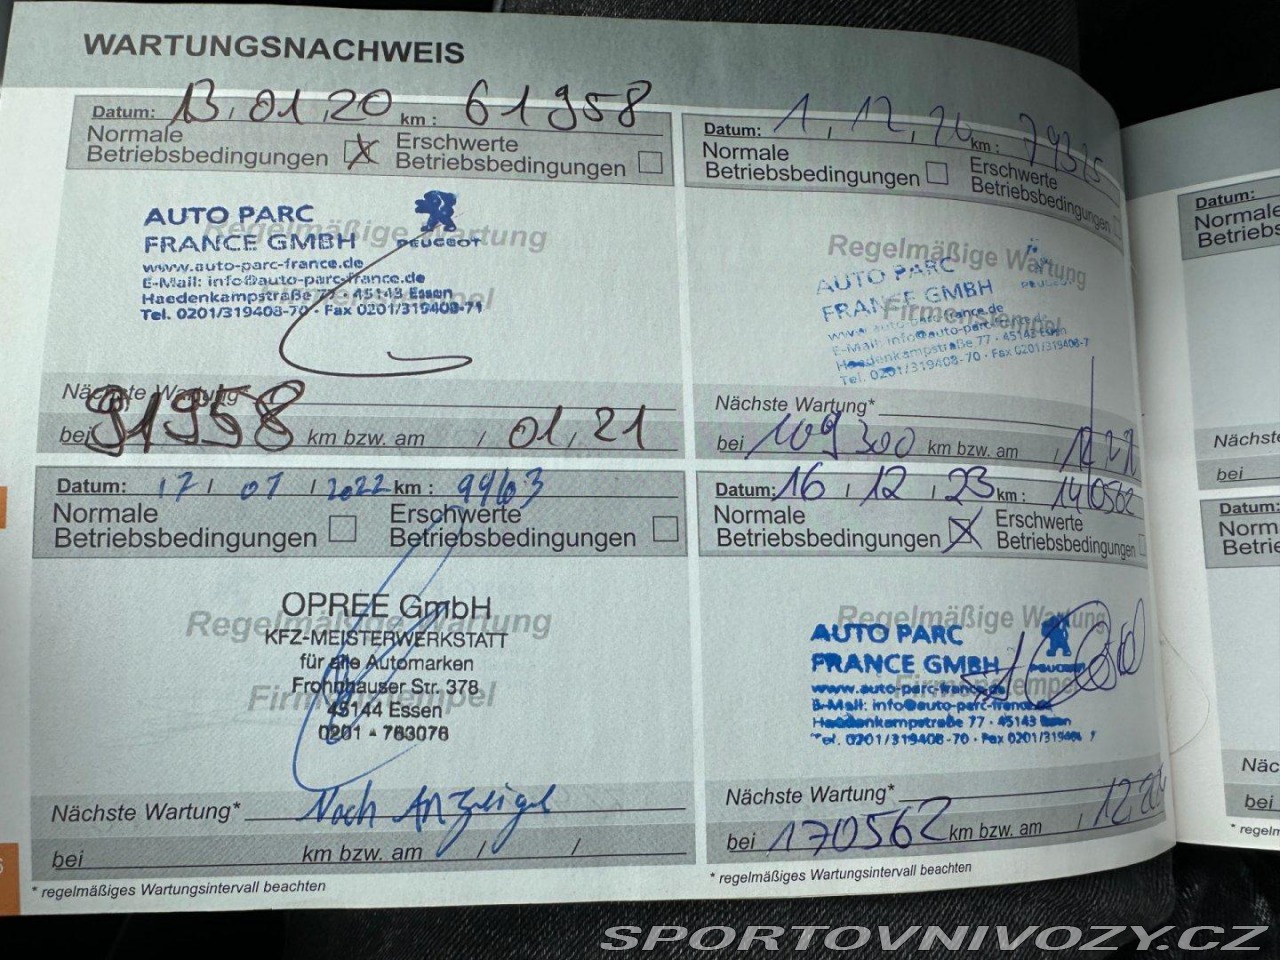 WARTUNGSNACHWEIS
Datum: 13.01.20 km : 61958
Normale
Betriebsbedingungen
Erschwerte
Betriebsbedingungen
Regelmäßige Wartung
Firmenstempel
AUTO PARC
FRANCE GMBH
PEUGEOT
www.auto-parc-france.de
E-Mail: info@auto-parc-france.de
Haedenkampstraße 77 · 45143 Essen
Tel. 0201/319408-70 · Fax 0201/319408-71
Nächste Wartung
bei 91958 km bzw. am / 01.21
Datum: 1.12.20 km : 79325
Normale
Betriebsbedingungen
Erschwerte
Betriebsbedingungen
Regelmäßige Wartung
Firmenstempel
AUTO PARC
FRANCE GMBH
www.auto-parc-france.de
E-Mail: info@auto-parc-france.de
Haedenkampstraße 77 · 45143 Essen
Tel. 0201/319408-70 · Fax 0201/319408-7
Nächste Wartung*
bei 109300 km bzw. am / 12.21
Datum: 17 / 01 / 2022 km :
Normale
Betriebsbedingungen
Erschwerte
Betriebsbedingungen
Regelmäßige Wartung
Firmenstempel
OPREE GmbH
KFZ-MEISTERWERKSTATT
für alle Automarken
Frohnhauser Str. 378
45144 Essen
0201 - 763076
Nächste Wartung* Nach Anzeige
bei km bzw. am / /
* regelmäßiges Wartungsintervall beachten
Datum: 16 / 12 . 23 km : 140562
Normale
Betriebsbedingungen
Erschwerte
Betriebsbedingungen
Regelmäßige Wartung
Firmenstempel
AUTO PARC
FRANCE GMBH
PEUGEOT
www.auto-parc-france.de
E-Mail: info@auto-parc-france.de
Haedenkampstraße 77 · 45143 Essen
Tel. 0201/319408-70 · Fax 0201/319408-7
Nächste Wartung*
bei 170562 km bzw. am / 12.
* regelmäßiges Wartungsintervall beachten
Datum:
Normale
Betriebs
Nächste
bei
Datum:
Norm
Betrie
Näc
bei
* regelm
SPORTOVNIVOZY.CZ